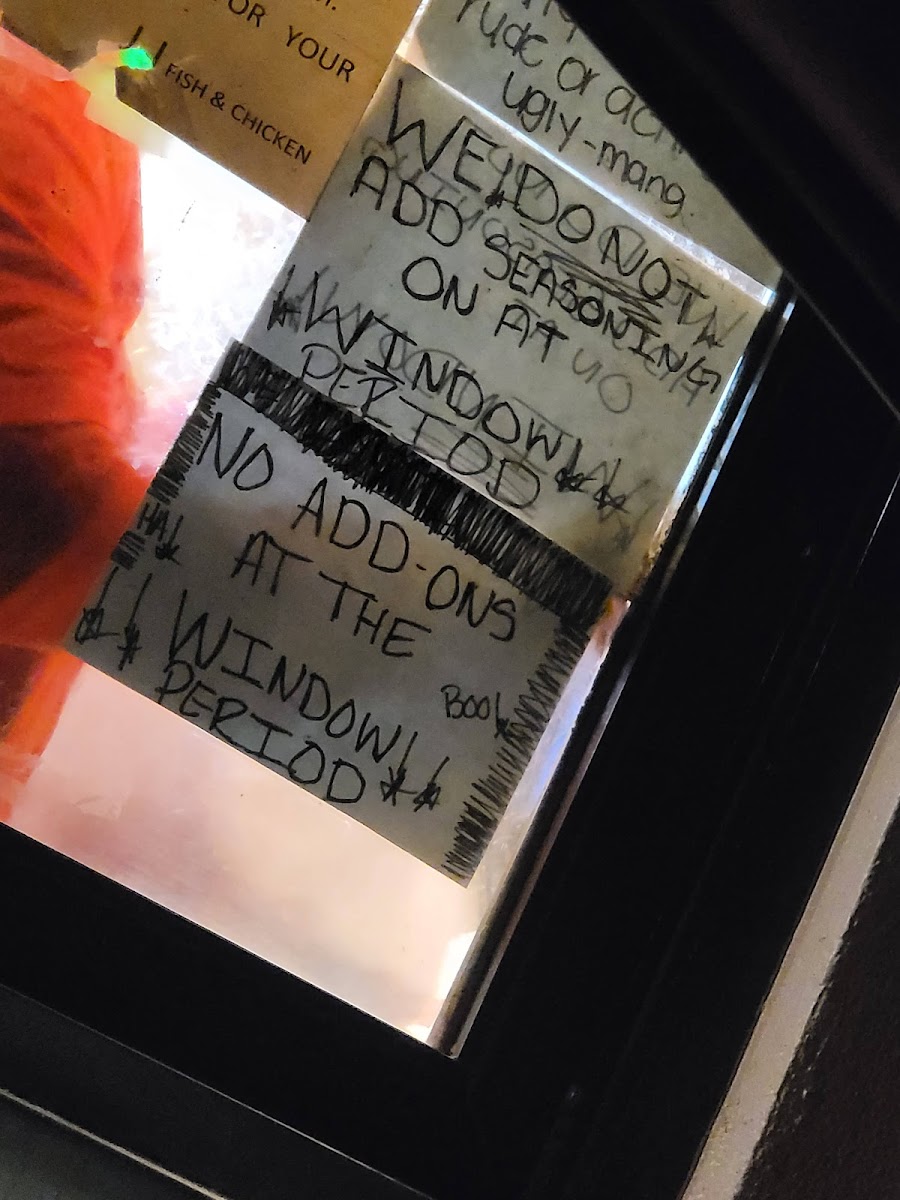 OR YOUR
FISH & CHICKEN
rude or
ugly-mang.
WE! DO NOT
ADD SEASONING
ON AT
WINDOW!
PERIOD
NO ADD-ONS
HA!
AT THE
BOO!
WINDOW!
PERIOD